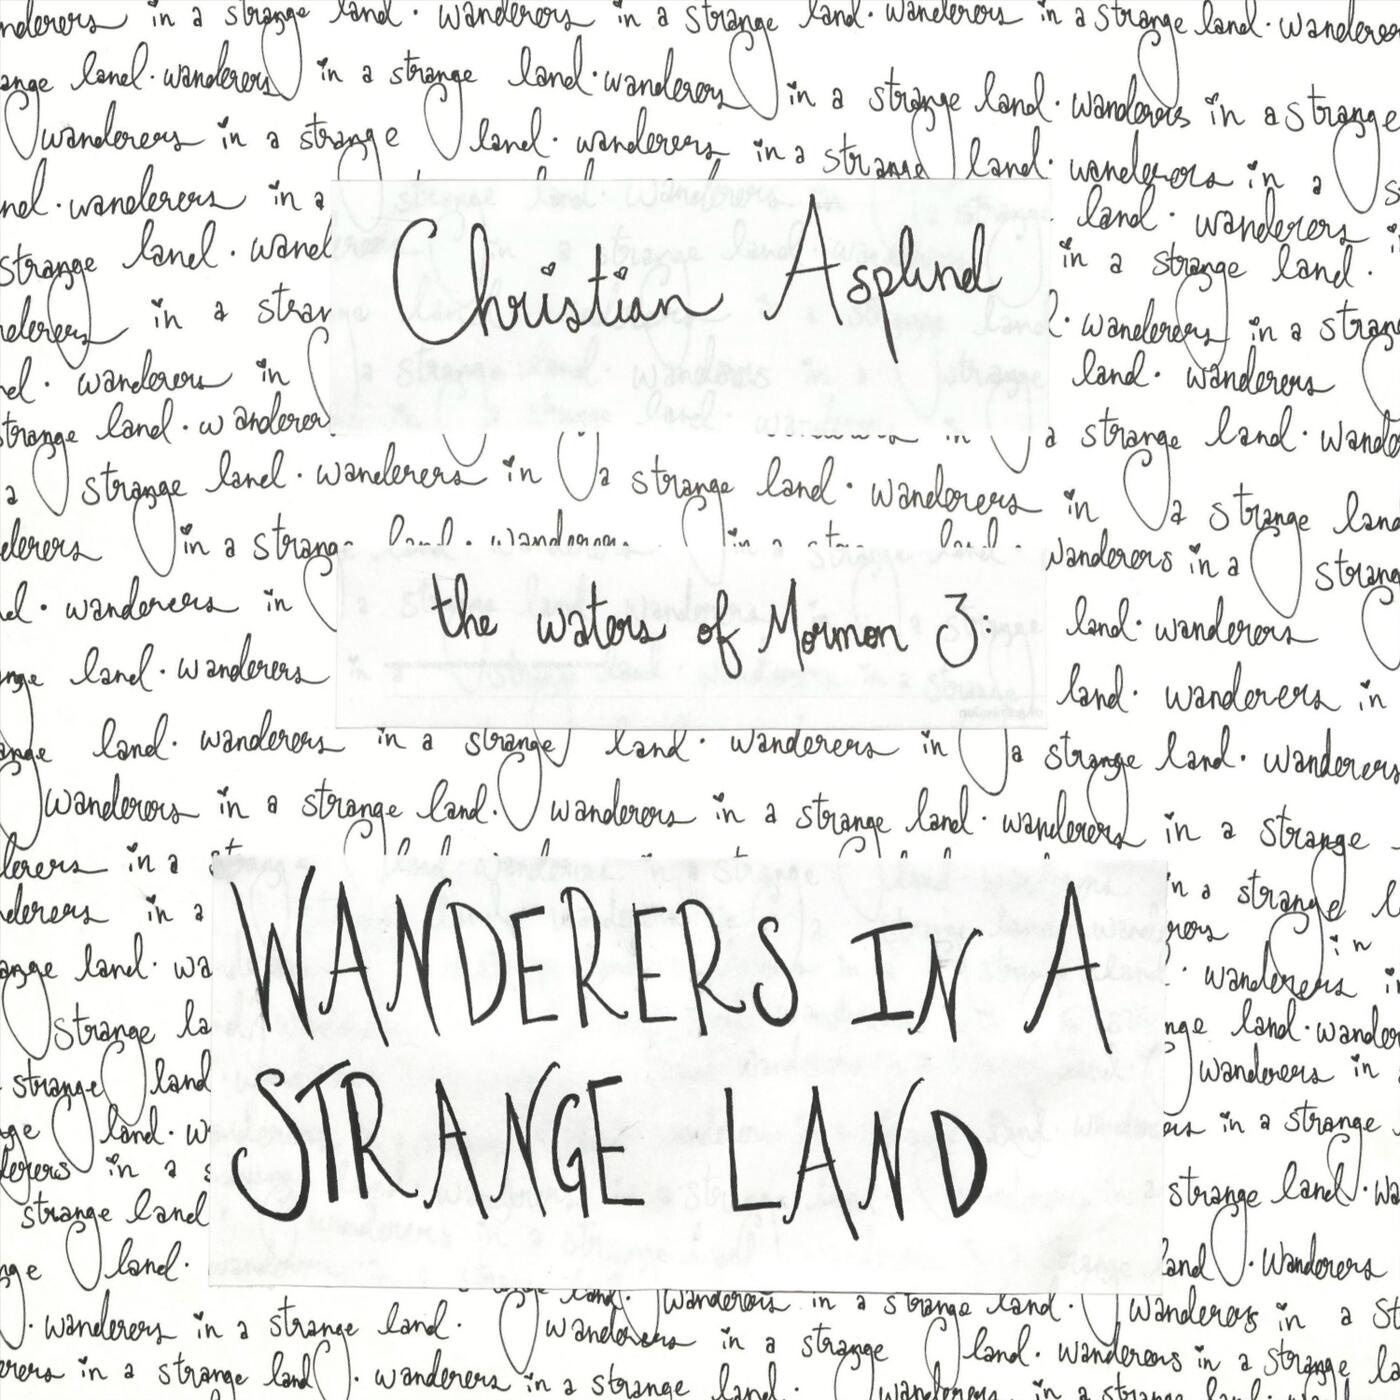 in a strange land · wanderers in a strange land · wanderers in a strange land ·
land · wanderers in a strange land · wanderers in a strange land · wanderers in a strange
wanderers in a strange land · wanderers in a strange land · wanderers in a
wanderers in a land · wanderers
strange land · in a strange land ·
Christian Asplund
in a wanderers in a
wanderers in land · wanderers
strange land · wanderers a strange land ·
a strange land · wanderers in a strange land · wanderers in a strange land
in a strange land · wanderers in a land · wanderers in a strange
the waters of Mormon 3:
wanderers in land · wanderers
land · wanderers land · wanderers in
land · wanderers in a strange land · wanderers in a strange land · wanderers
wanderers in a strange land · wanderers in a strange land · wanderers in a strange
in a
in a in a strange
WANDERERS IN A
land · in
wanderers
strange land ·
strange land wanderers in
STRANGE LAND
land · in a strange
in a strange land ·
strange land
land · land · wanderers
· wanderers in a strange land · wanderers in a strange land · wanderers in a
wanderers in a strange land · wanderers in a strange
in a strange land · wanderers in a strange land · wanderers in a strange